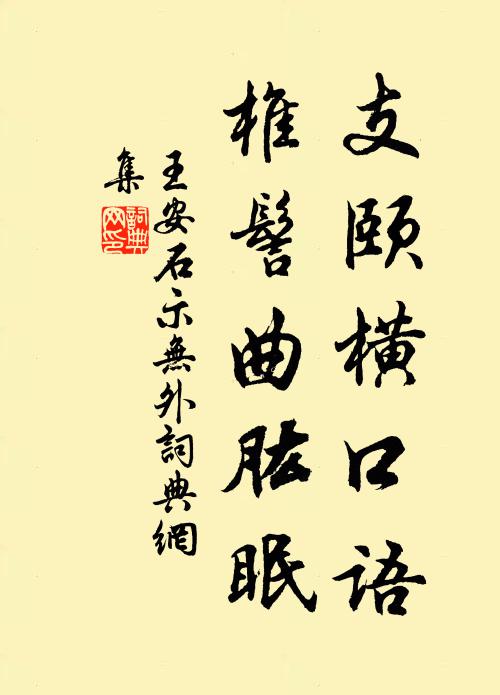 支頤橫口語
椎髻曲肱眠
王安石示無外詞典網
集
詞典
网印